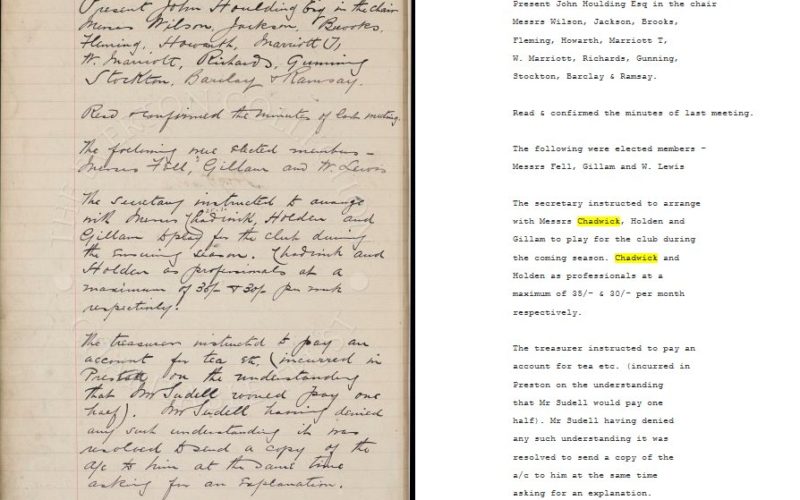 Present John Houlding Esq in the chair
Messrs Wilson, Jackson, Brooks,
Fleming, Howarth, Marriott (T),
W. Marriott, Richards, Gunning
Stockton, Barclay & Ramsay.
Read & confirmed the minutes of last meeting.
The following were elected members –
Messrs Fell, Gillam and W. Lewis
The secretary instructed to arrange
with Messrs Chadwick, Holden and
Gillam to play for the club during
the ensuing season. Chadwick and
Holden as professionals at a
maximum of 35/- & 30/- per week
respectively.
The treasurer instructed to pay an
account for tea etc. (incurred in
Preston on the understanding
that Mr Sudell would pay one
half). Mr Sudell having denied
any such understanding it was
resolved to send a copy of the
a/c to him at the same time
asking for an explanation.
Present John Houlding Esq in the chair
Messrs Wilson, Jackson, Brooks,
Fleming, Howarth, Marriott T,
W. Marriott, Richards, Gunning,
Stockton, Barclay & Ramsay.
Read & confirmed the minutes of last meeting.
The following were elected members –
Messrs Fell, Gillam and W. Lewis
The secretary instructed to arrange
with Messrs Chadwick, Holden and
Gillam to play for the club during
the coming season. Chadwick and
Holden as professionals at a
maximum of 35/- & 30/- per month
respectively.
The treasurer instructed to pay an
account for tea etc. (incurred in
Preston on the understanding
that Mr Sudell would pay one
half). Mr Sudell having denied
any such understanding it was
resolved to send a copy of the
a/c to him at the same time
asking for an explanation.